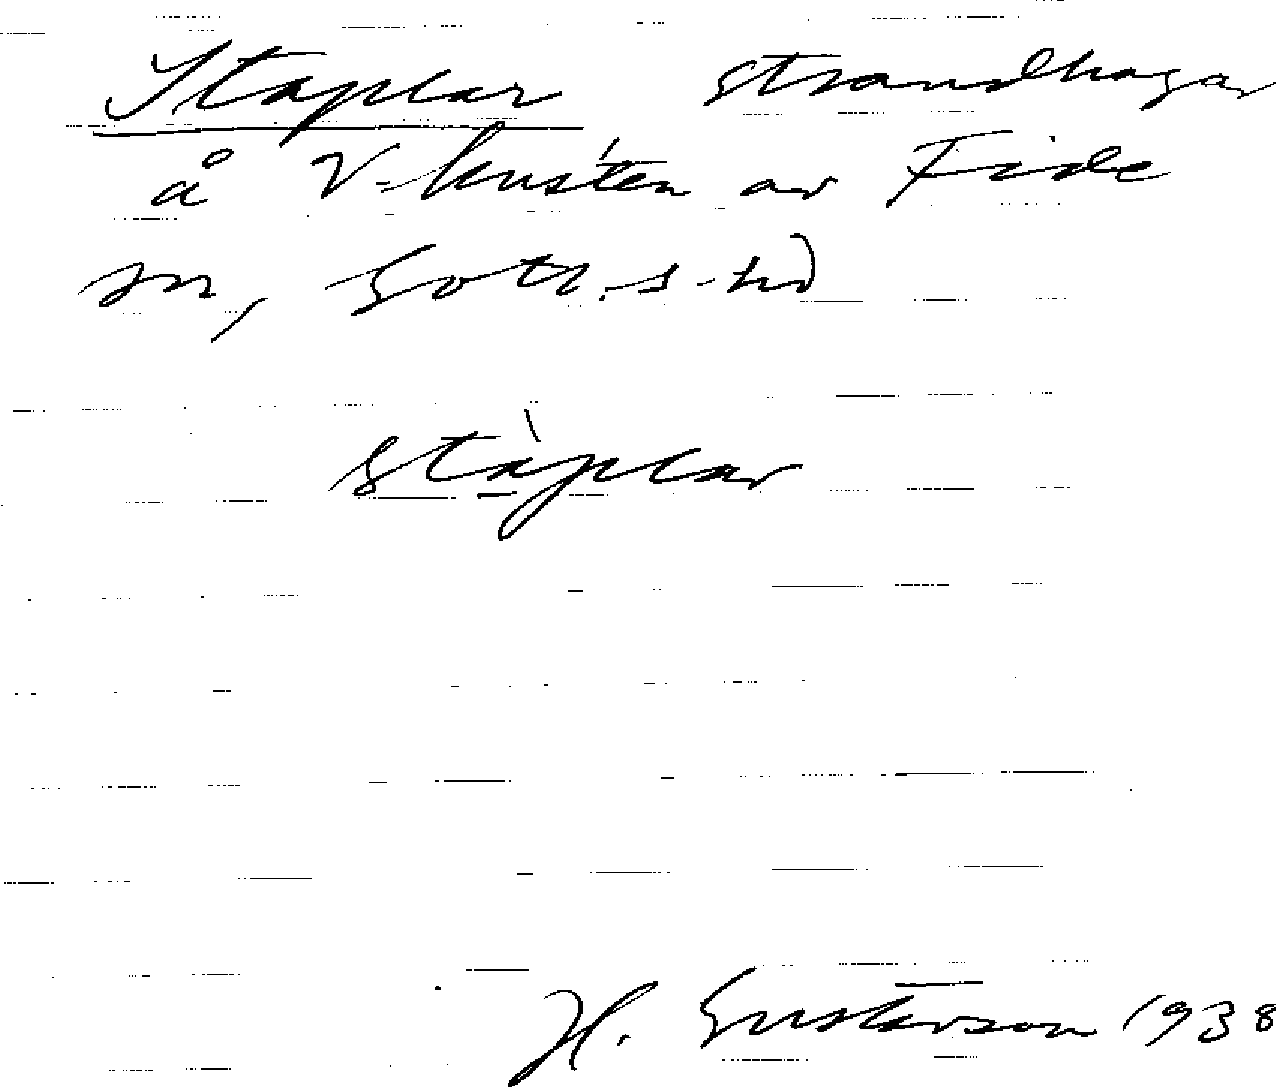 Staplar strandhagar
å V-kusten av Fide
sn, Gotl. s. hd
stàplar
H. Gustavson 1938